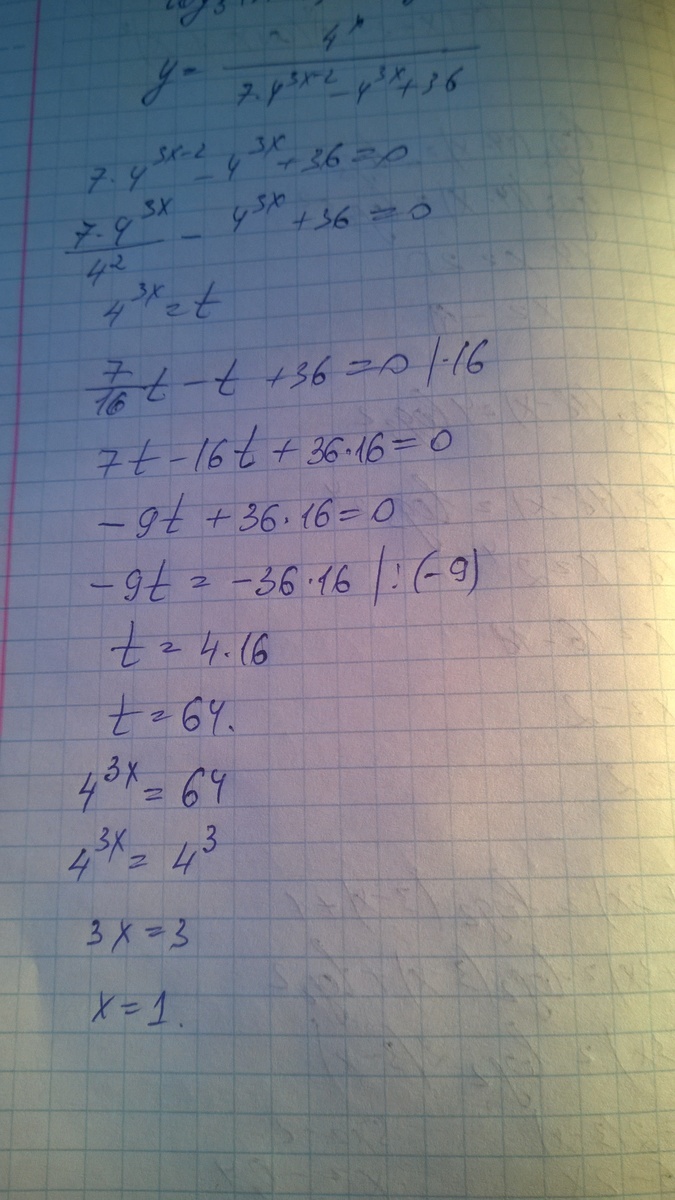 y = 4^x / (7·4^(3x-2) - 4^(3x) + 36)
7·4^(3x-2) - 4^(3x) + 36 = 0
7·4^(3x) / 4^2 - 4^(3x) + 36 = 0
4^(3x) = t
7/16 t - t + 36 = 0 |·16
7t - 16t + 36·16 = 0
-9t + 36·16 = 0
-9t = -36·16 |:(-9)
t = 4·16
t = 64.
4^(3x) = 64
4^(3x) = 4^3
3x = 3
x = 1.